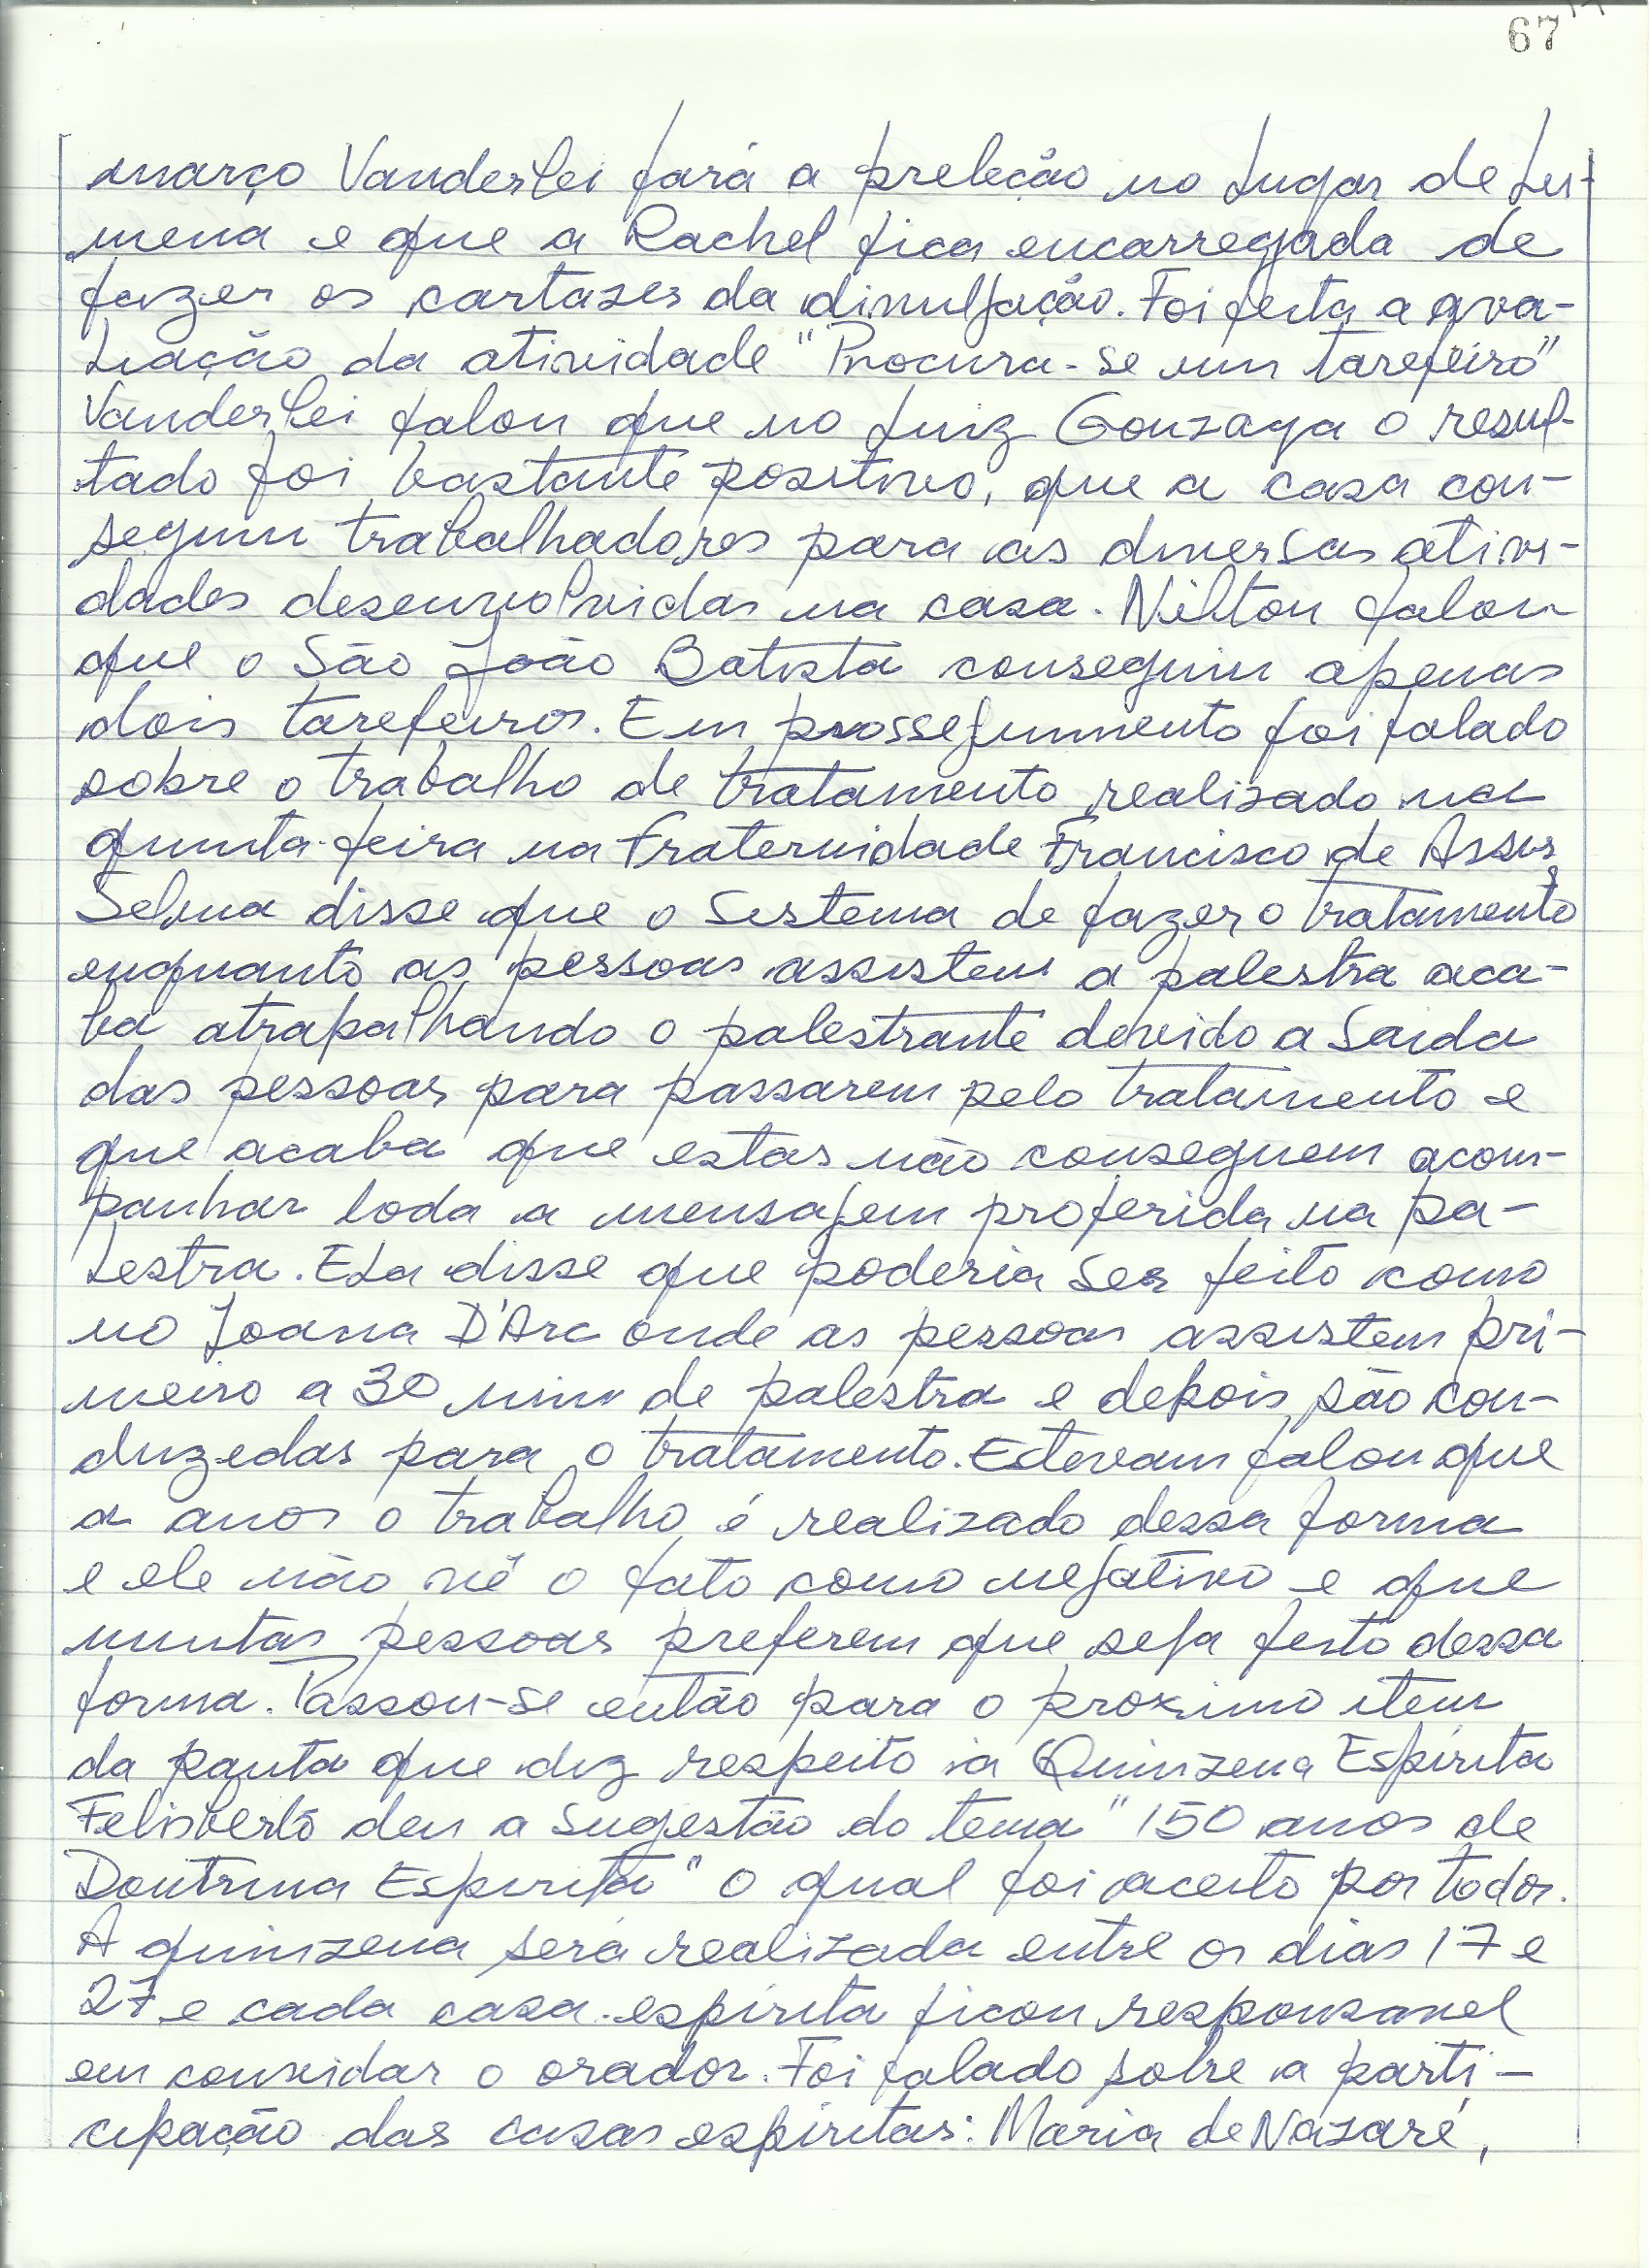 67
março Vanderlei fará a preleção no lugar de Lu-
mena e que a Rachel fica encarregada de
fazer os cartazes da divulgação. Foi feita a ava-
liação da atividade "Procura-se um tarefeiro"
Vanderlei falou que no Luiz Gonzaga o resul-
tado foi bastante positivo, que a casa con-
seguiu trabalhadores para as diversas ativi-
dades desenvolvidas na casa. Nilton falou
que o São João Batista conseguiu apenas
dois tarefeiros. Em prosseguimento foi falado
sobre o trabalho de tratamento realizado na
quinta-feira na Fraternidade Francisco de Assis,
Selma disse que o sistema de fazer o tratamento
enquanto as pessoas assistem a palestra aca-
ba atrapalhando o palestrante devido a saida
das pessoas para passarem pelo tratamento e
que acaba que estas não conseguem acom-
panhar toda a mensagem proferida na pa-
lestra. Ela disse que poderia ser feito como
no Joana D'Arc onde as pessoas assistem pri-
meiro a 30 min de palestra e depois são con-
duzedas para o tratamento. Estevam falou que
a anos o trabalho é realizado dessa forma
e ele não vê o fato como negativo e que
muitas pessoas preferem que seja feito dessa
forma. Passou-se então para o proximo item
da pauta que diz respeito a Quinzena Espírita
Felisberto deu a sugestão do tema "150 anos de
Doutrina Espirita" o qual foi aceito por todos.
A quinzena será realizada entre os dias 17 e
27 e cada casa espírita ficou responsavel
em convidar o orador. Foi falado sobre a parti-
cipação das casas espíritas: Maria de Nazaré,